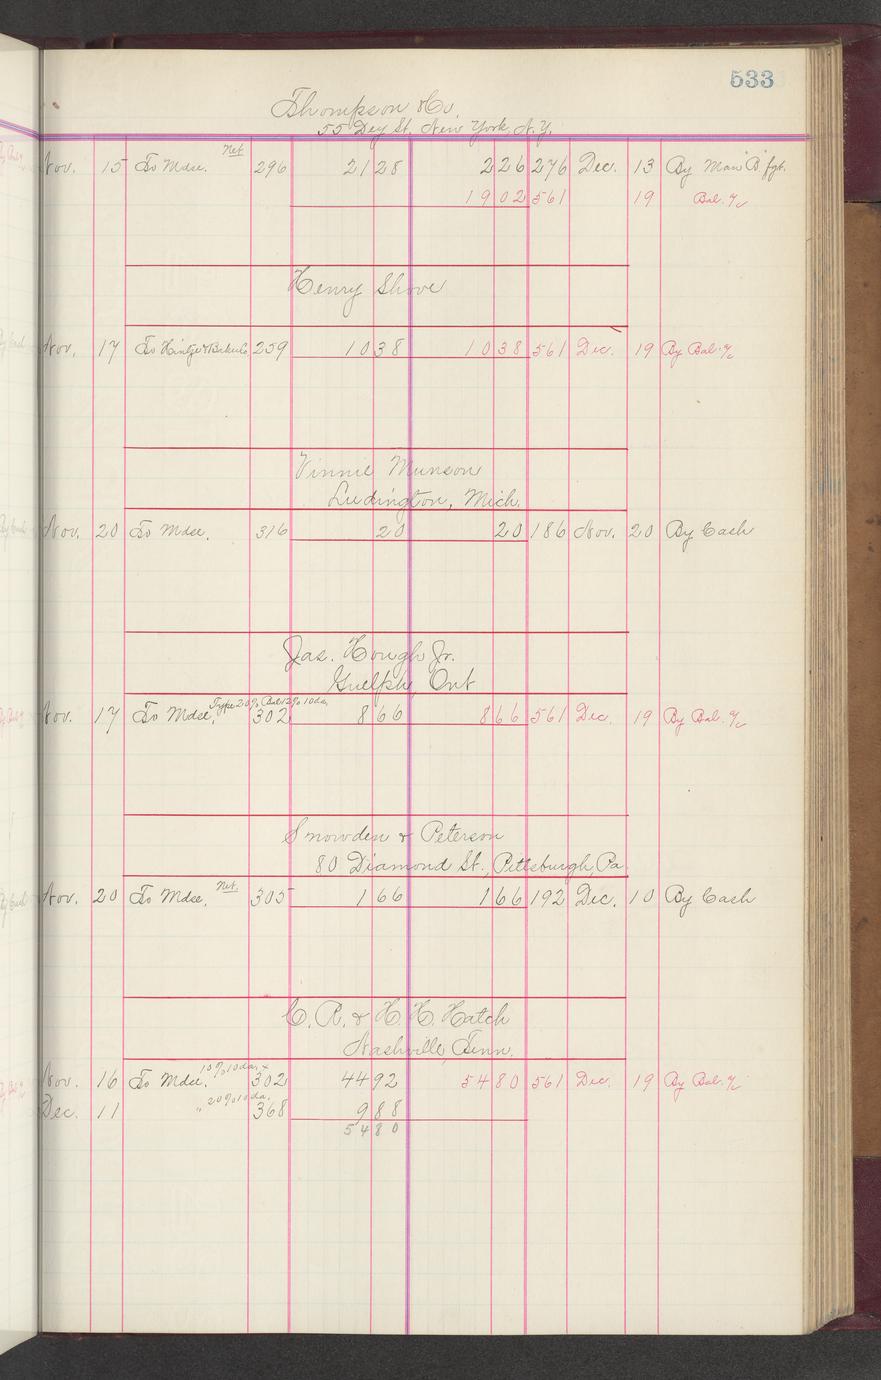 533
Thompson & Co.
55 Dey St. New York, N.Y.
Nov. 15 To Mdse. Net 296 21 28 2 26 276 Dec. 13 By Man "B" fgt.
19 02 561 19 Bal. a/c
Henry Shove
Nov. 17 To 259 10 38 10 38 561 Dec. 19 By Bal. a/c
Vinnie Munson
Ludington, Mich.
Nov. 20 To Mdse. 316 20 20 186 Nov. 20 By Cash
Jas. Hough Jr.
Guelph, Ont
Type 20% Bal 12% 10 da.
Nov. 17 To Mdse. 302 8 66 8 66 561 Dec. 19 By Bal. a/c
Snowden & Peterson
80 Diamond St., Pittsburgh, Pa.
Nov. 20 To Mdse. Net. 305 1 66 1 66 192 Dec. 10 By Cash
C. R. & H. H. Hatch
Nashville, Tenn.
Nov. 16 To Mdse. 10% 10 da. x 302 44 92 54 80 561 Dec. 19 By Bal. a/c
Dec. 11 " 20% 10 da. 368 9 88
54 80